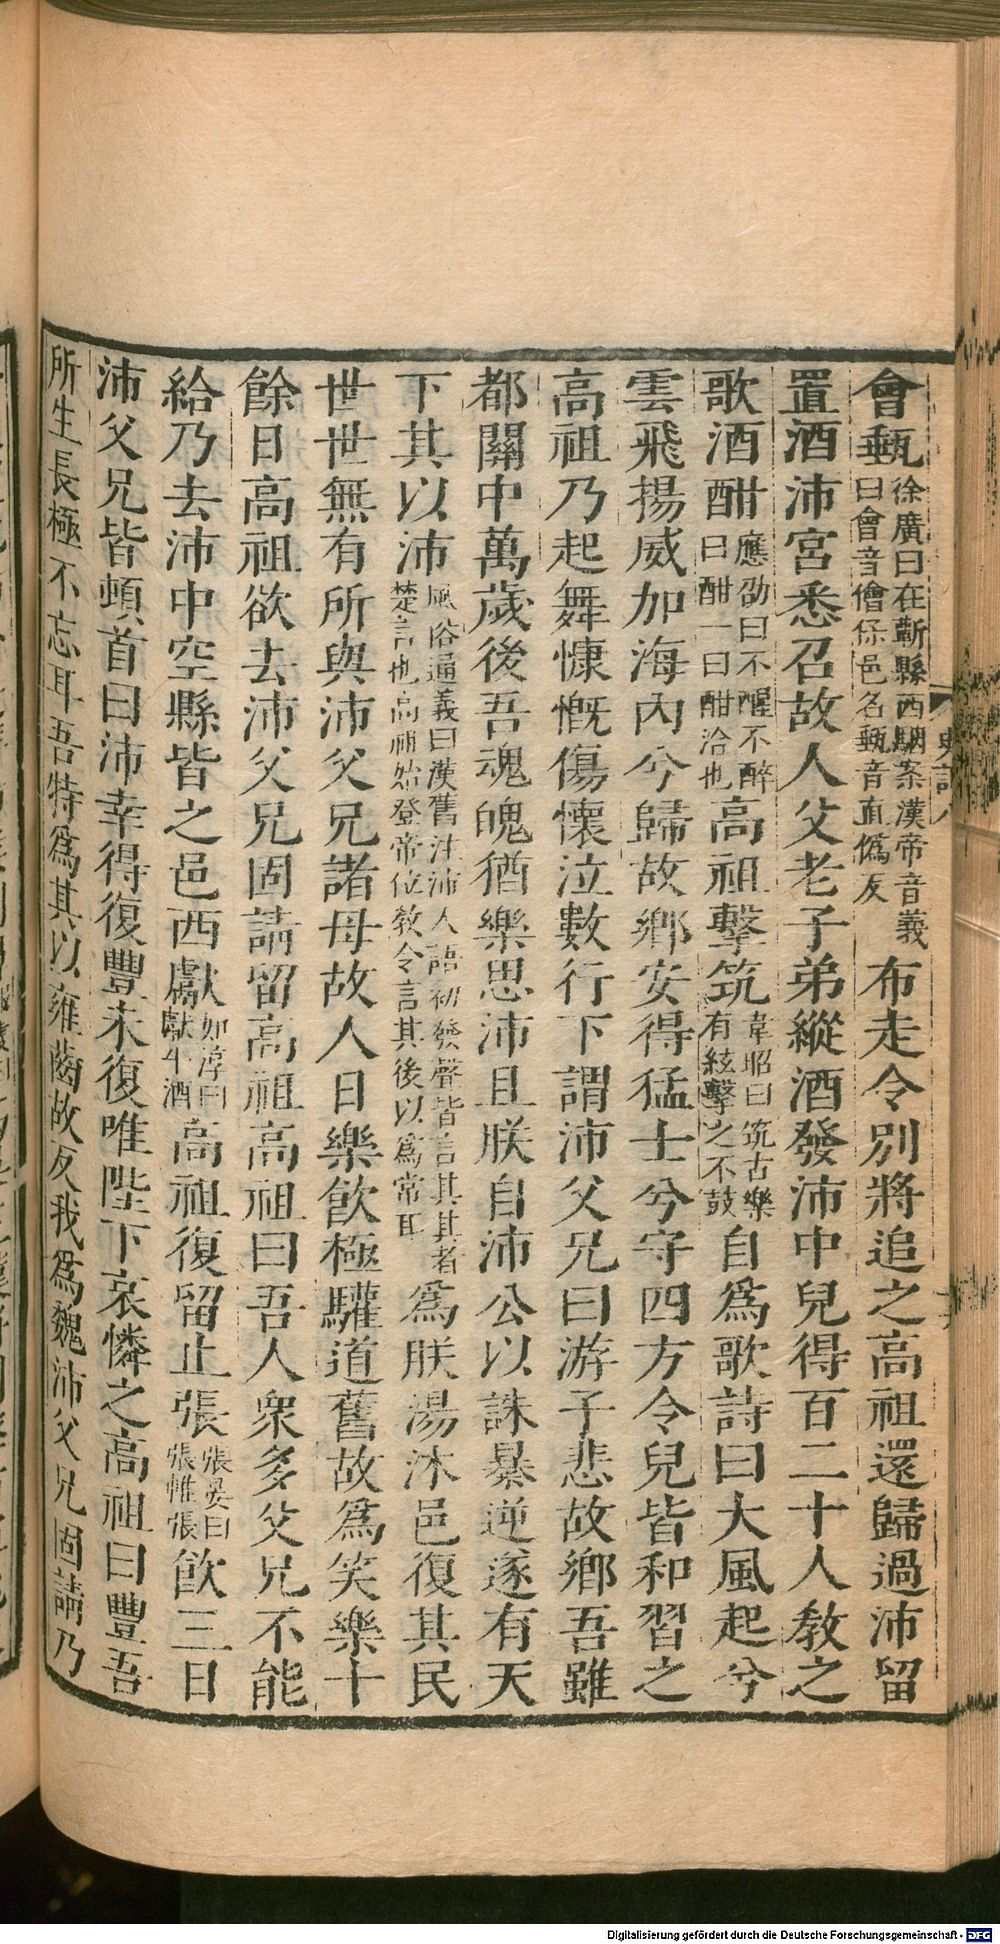 會甀徐廣曰在蘄縣西駰案漢帝音義曰會音儈保邑名甀音直僞反布走令別將追之高祖還歸過沛留
置酒沛宮悉召故人父老子弟縱酒發沛中兒得百二十人教之
歌酒酣應劭曰不醒不醉曰酣一曰酣洽也高祖擊筑韋昭曰筑古樂有絃擊之不鼓自爲歌詩曰大風起兮
雲飛揚威加海內兮歸故鄉安得猛士兮守四方令兒皆和習之
高祖乃起舞慷慨傷懷泣數行下謂沛父兄曰游子悲故鄉吾雖
都關中萬歲後吾魂魄猶樂思沛且朕自沛公以誅暴逆遂有天
下其以沛風俗通義曰漢舊注沛人語初發聲皆言其其者楚言也高祖始登帝位教令言其後以爲常耳爲朕湯沐邑復其民
世世無有所與沛父兄諸母故人日樂飲極驩道舊故爲笑樂十
餘日高祖欲去沛父兄固請留高祖高祖曰吾人衆多父兄不能
給乃去沛中空縣皆之邑西獻如淳曰獻牛酒高祖復留止張張晏曰張帷張飲三日
沛父兄皆頓首曰沛幸得復豐未復唯陛下哀憐之高祖曰豐吾
所生長極不忘耳吾特爲其以雍齒故反我爲魏沛父兄固請乃
史記八
Digitalisierung gefördert durch die Deutsche Forschungsgemeinschaft - DFG